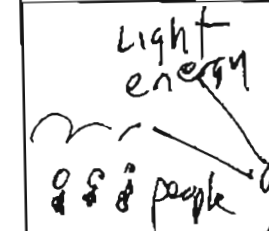 Light
energy
people